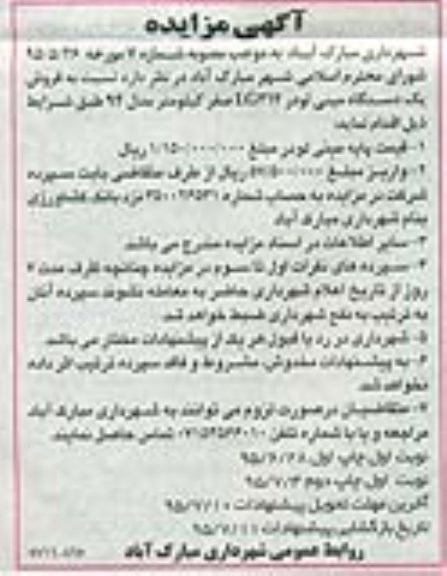 آگهی مزایده
شهرداری مبارک آباد به موجب مصوبه شماره ۷ مورخه ۹۵/۵/۲۶
شورای محترم اسلامی شهر مبارک آباد در نظر دارد نسبت به فروش
یک دستگاه مینی لودر صفر کیلومتر مدل ۹۴ طبق شرایط
ذیل اقدام نماید.
۱- قیمت پایه مینی لودر مبلغ ۱/۱۵۰/۰۰۰/۰۰۰ ریال
۲- واریز مبلغ ۵۷/۵۰۰/۰۰۰ ریال از طرف متقاضی بابت سپرده
شرکت در مزایده به حساب شماره نزد بانک کشاورزی
بنام شهرداری مبارک آباد
۳- سایر اطلاعات در اسناد مزایده مندرج می باشد
۴- سپرده های نفرات اول تا سوم در مزایده چنانچه ظرف مدت ۷
روز از تاریخ اعلام شهرداری حاضر به معامله نشوند سپرده آنان
به ترتیب به نفع شهرداری ضبط خواهد شد
۵- شهرداری در رد یا قبول هر یک از پیشنهادات مختار می باشد
۶- به پیشنهادات مخدوش، مشروط و فاقد سپرده ترتیب اثر داده
نخواهد شد
۷- متقاضیان درصورت لزوم می توانند به شهرداری مبارک آباد
مراجعه و یا با شماره تلفن تماس حاصل نمایند
نوبت اول چاپ اول ۹۵/۶/۲۸
نوبت اول چاپ دوم ۹۵/۷/۳
آخرین مهلت تحویل پیشنهادات ۹۵/۷/۱۰
تاریخ بازگشایی پیشنهادات ۹۵/۷/۱۱
روابط عمومی شهرداری مبارک آباد